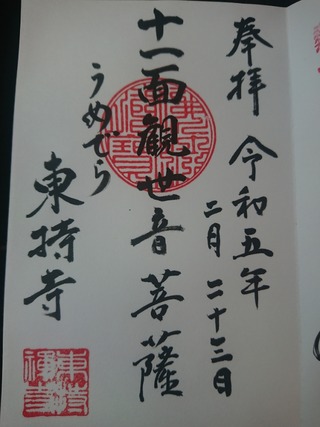 奉拝 令和五年
二月二十三日
十一面観世音菩薩
うめでら
東持寺